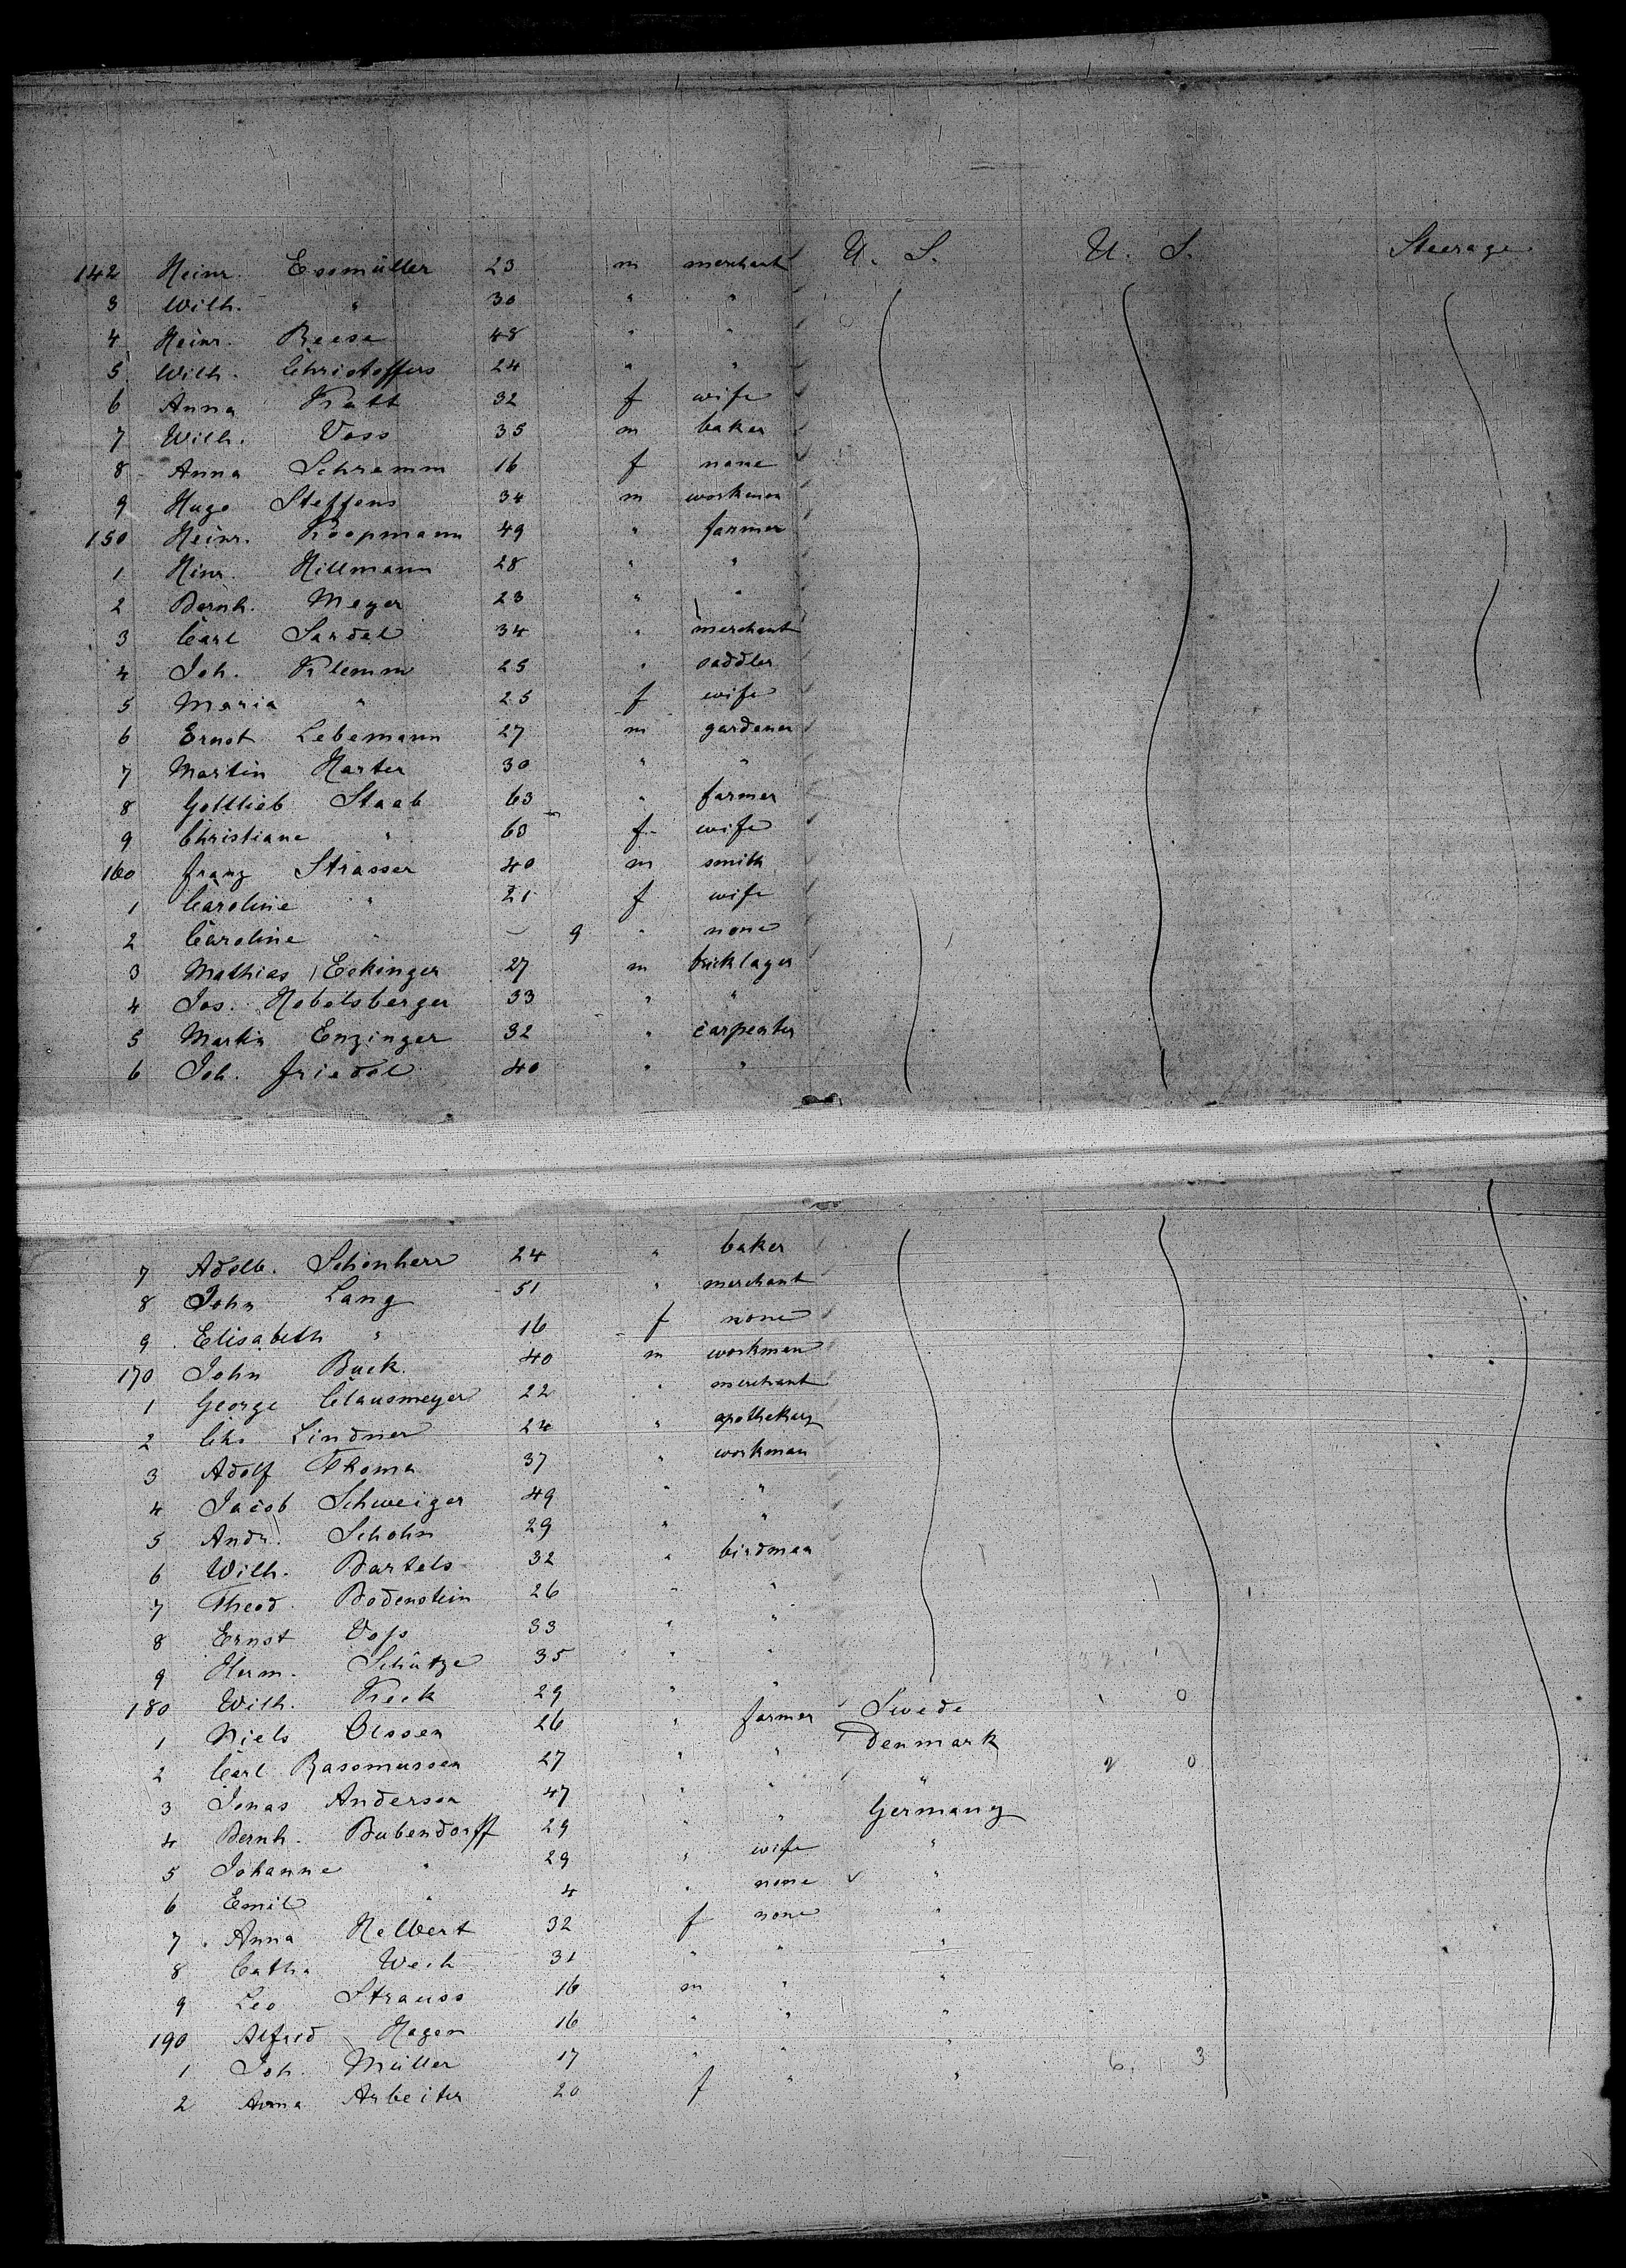 142 Heinr. Essmüller 23 m merchant U. S. U. S. Steerage
3 Wilh. " 30 " "
4 Heinr. Reese 48 " "
5 Wilh. Christoffers 24 " "
6 Anna Kratt 32 f wife
7 Wilh. Voss 35 m baker
8 Anna Schramm 16 f none
9 Hugo Steffens 34 m workman
150 Heinr. Koopmann 49 " farmer
1 Hinr. Hillmann 28 " "
2 Bernh. Meyer 23 " "
3 Carl Sardel 34 " merchant
4 Joh. Klemm 25 " saddler
5 Maria " 25 f wife
6 Ernst Lebemann 27 m gardener
7 Martin Harter 30 " "
8 Gottlieb Staab 63 " farmer
9 Christiane " 63 f wife
160 Franz Strasser 40 m smith
1 Caroline " 21 f wife
2 Caroline " 9 " none
3 Mathias Eckinger 27 m bricklayer
4 Jos. Hebelsberger 33 " "
5 Martin Enzinger 32 " carpenter
6 Joh. Friedel 40 " "
7 Adolb. Schönherr 24 " baker
8 John Lang 51 " merchant
9 Elisabeth " 16 f none
170 John Buck 40 m workman
1 George Clausmeyer 22 " merchant
2 Chs Lindner 24 " apothekary
3 Adolf Thoma 37 " workman
4 Jacob Schweiger 49 " "
5 Andr. Schohn 29 " "
6 Wilh. Bartels 32 " birdman
7 Theod. Bodenstein 26 " "
8 Ernst Voss 33 " "
9 Herm. Schütze 35 " "
180 Wilh. Kreck 29 " "
1 Niels Olssen 26 " farmer Swede 1 0
2 Carl Rassmussen 27 " " Denmark
3 Jonas Anderson 47 " " " 2 0
4 Bernh. Bubendorff 29 " " Germany
5 Johanne " 29 " wife "
6 Emil " 4 " none "
7 Anna Helbert 32 f none "
8 Catha Weih 31 " " "
9 Leo Strauss 16 m " "
190 Alfred Hagen 16 " " "
1 Joh. Müller 17 " " "
2 Anna Arbeiter 20 f " " 6 3